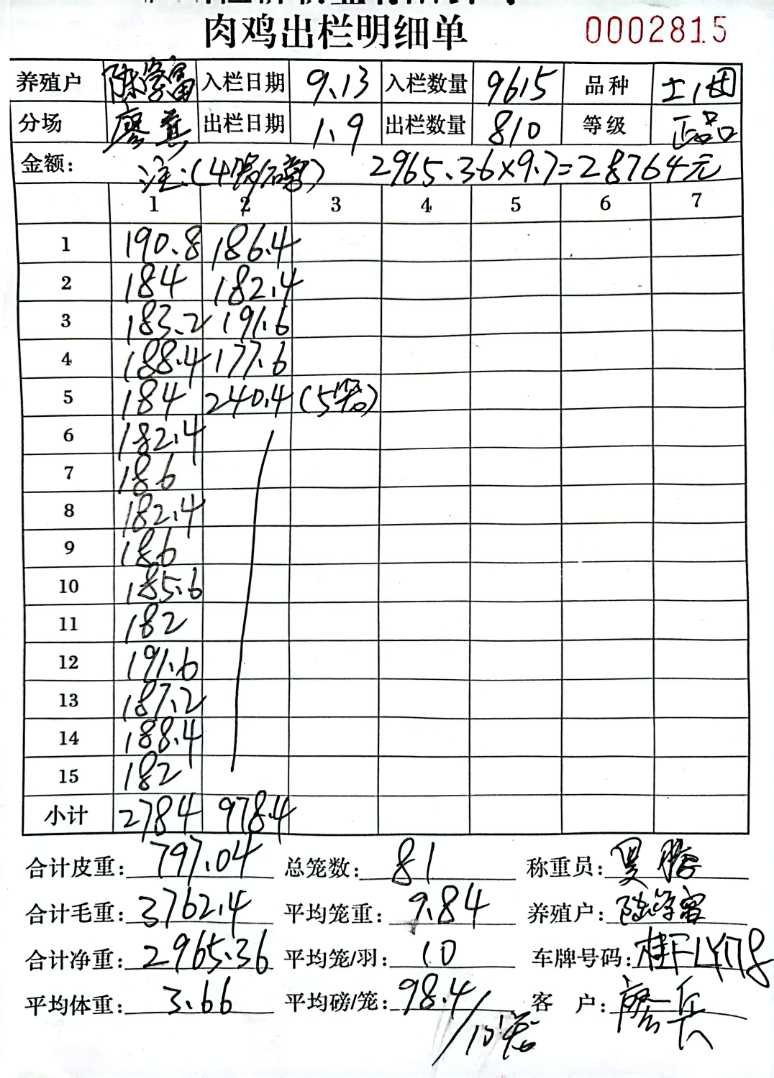 肉鸡出栏明细单 0002815
养殖户 陈学富 入栏日期 9.13 入栏数量 9615 品种
分场 出栏日期 1.9 出栏数量 810 等级 正品
金额: 注:(4笼/磅) 2965.36×9.7=28764元
1 2 3 4 5 6 7
1 190.8 186.4
2 184 182.4
3 183.2 191.6
4 188.4 177.6
5 184 240.4 (5笼)
6 182.4
7 186
8 182.4
9 186
10 185.6
11 182
12 191.6
13 187.2
14 188.4
15 182
小计 2784 978.4
合计皮重: 797.04 总笼数: 81 称重员:
合计毛重: 3762.4 平均笼重: 9.84 养殖户: 陈学富
合计净重: 2965.36 平均笼/羽: 10 车牌号码:
平均体重: 3.66 平均磅/笼: 98.4/10笼 客户: